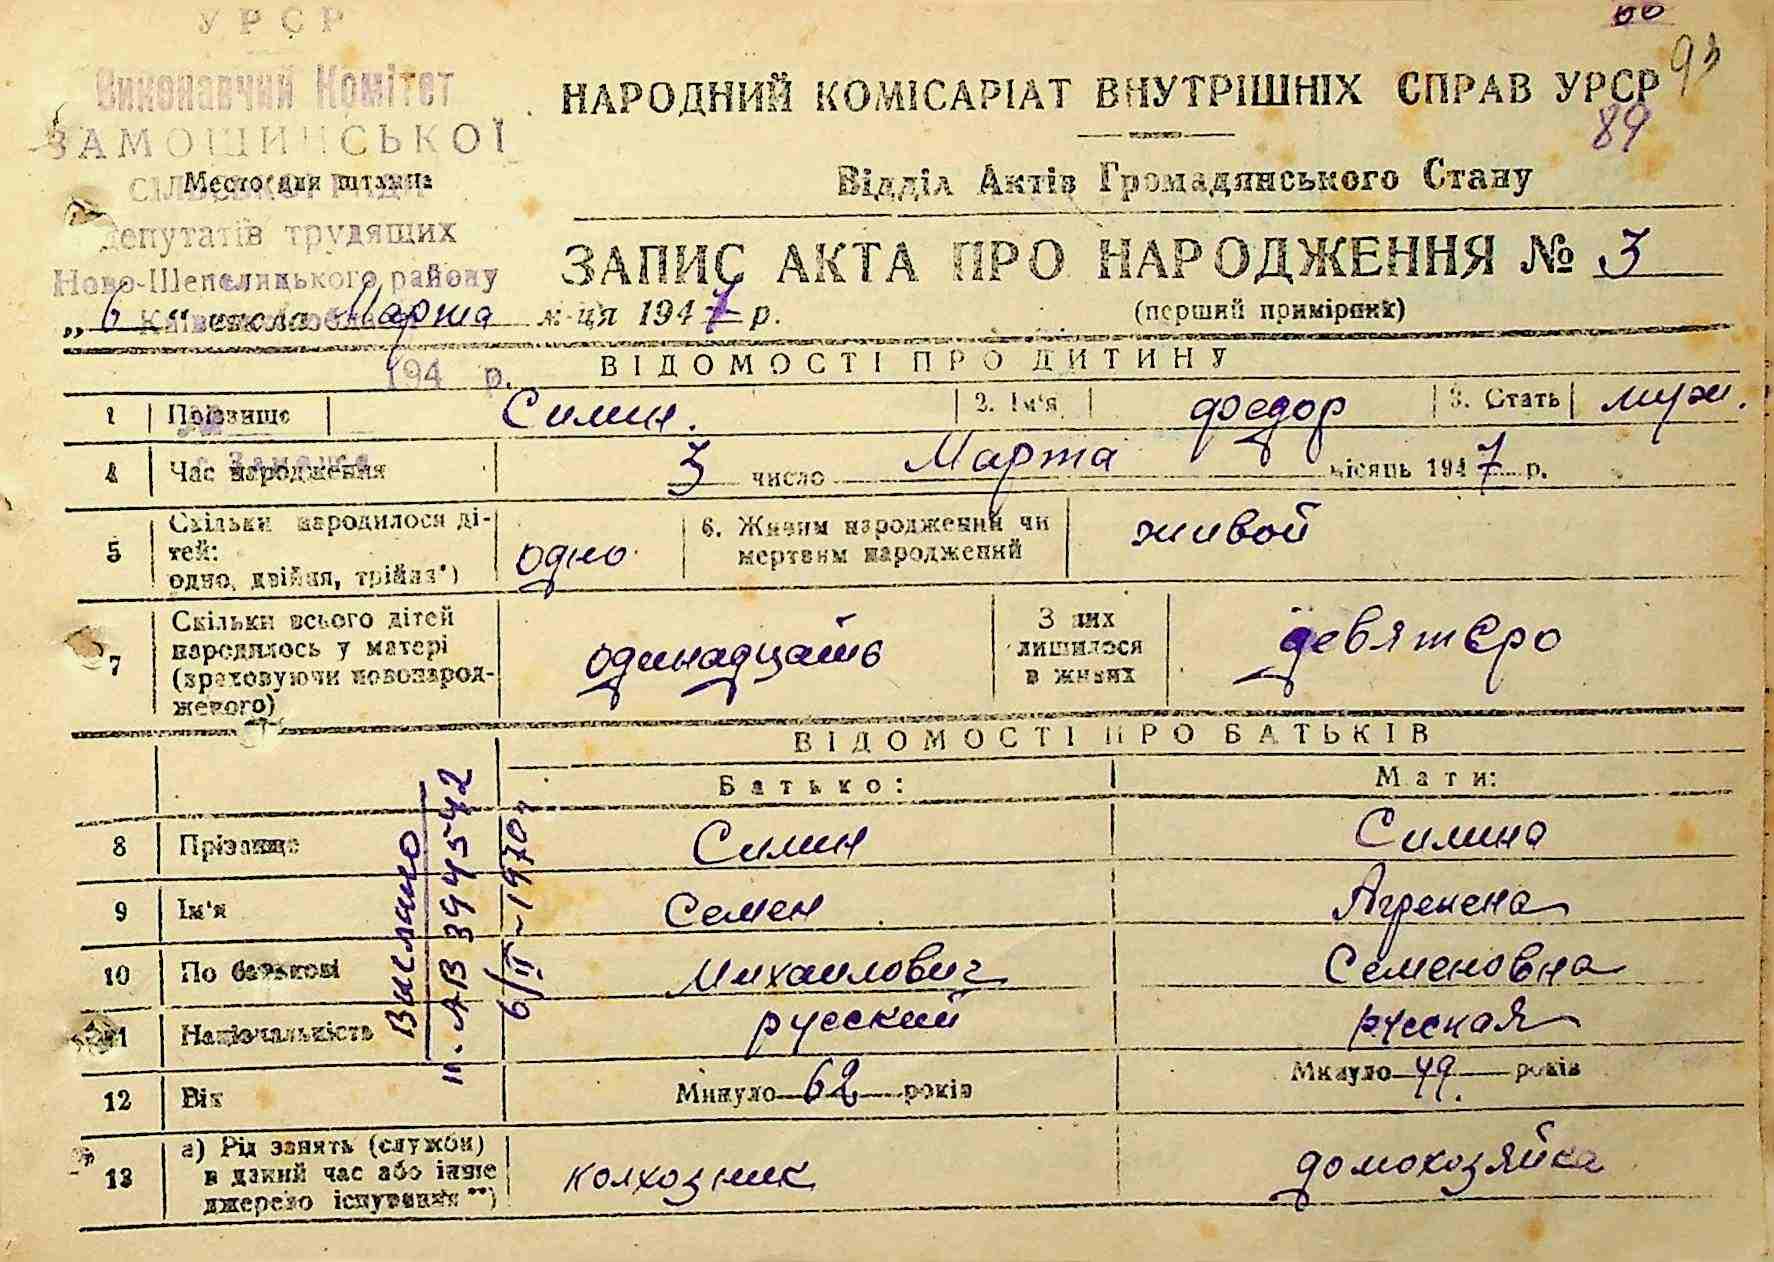 УРСР
Виконавчий Комітет
ЗАМОШИНСЬКОЇ
Место для штампа
депутатів трудящих
Ново-Шепелицького району
194 р.
93
89
НАРОДНИЙ КОМІСАРІАТ ВНУТРІШНІХ СПРАВ УРСР
Відділ Актів Громадянського Стану
ЗАПИС АКТА ПРО НАРОДЖЕННЯ № 3
(перший примірник)
„6“ числа Марта м-ця 1947 р.
ВІДОМОСТІ ПРО ДИТИНУ
1 Прізвище Силин. 2. Ім'я Федор 3. Стать муж.
4 Час народження 3 число Марта місяць 1947 р.
5 Скільки народилося ді-
тей:
одно, двійня, трійня*) одно 6. Живим народжений чи
мертвим народжений живой
7 Скільки всього дітей
народилось у матері
(враховуючи новонарод-
женого) одинадцать З них
лишилося
в живих девятеро
ВІДОМОСТІ ПРО БАТЬКІВ
Батько: Мати:
8 Прізвище Силин Силина
9 Ім'я Семен Агренена
10 По батькові Михаилович Семеновна
11 Національність русский русская
12 Вік Минуло 62 років Минуло 49. років
13 а) Рід занять (служби)
в даний час або інше
джерело існування**) колхозник домохозяйка
Вислано
ІІ-АВ 3945542
6/ІІ-1970г